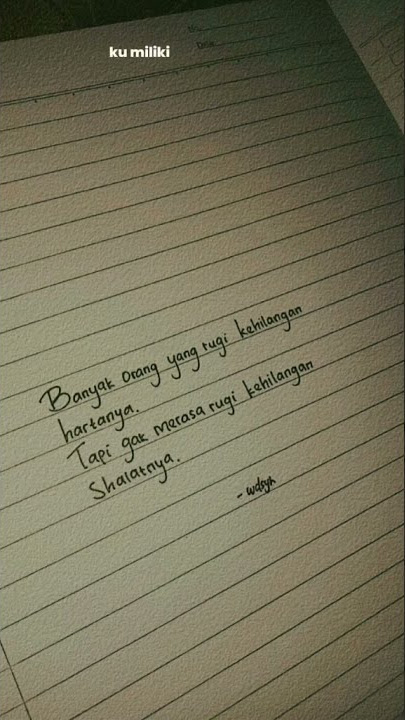 ku miliki
No.
Date.
Banyak orang yang rugi kehilangan
hartanya.
Tapi gak merasa rugi kehilangan
Shalatnya.
- wdsyh